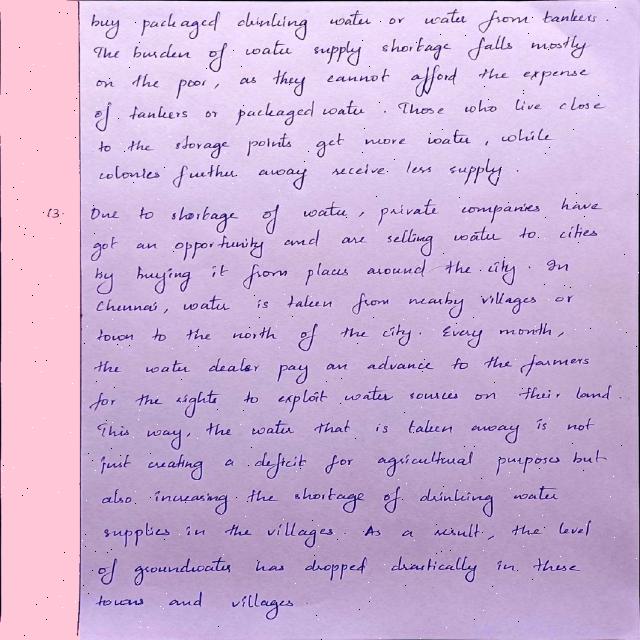 buy packaged drinking water or water from tankers.
The burden of water supply shortage falls mostly
on the poor, as they cannot afford the expense
of tankers or packaged water. Those who live close
to the storage points get more water, while
colonies further away receive less supply.
13. Due to shortage of water, private companies have
got an opportunity and are selling water to cities
by buying it from places around the city. In
Chennai, water is taken from nearby villages or
town to the north of the city. Every month,
the water dealer pay an advance to the farmers
for the rights to exploit water sources on their land.
This way, the water that is taken away is not
just creating a deficit for agricultural purposes but
also increasing the shortage of drinking water
supplies in the villages. As a result, the level
of groundwater has dropped drastically in these
towns and villages